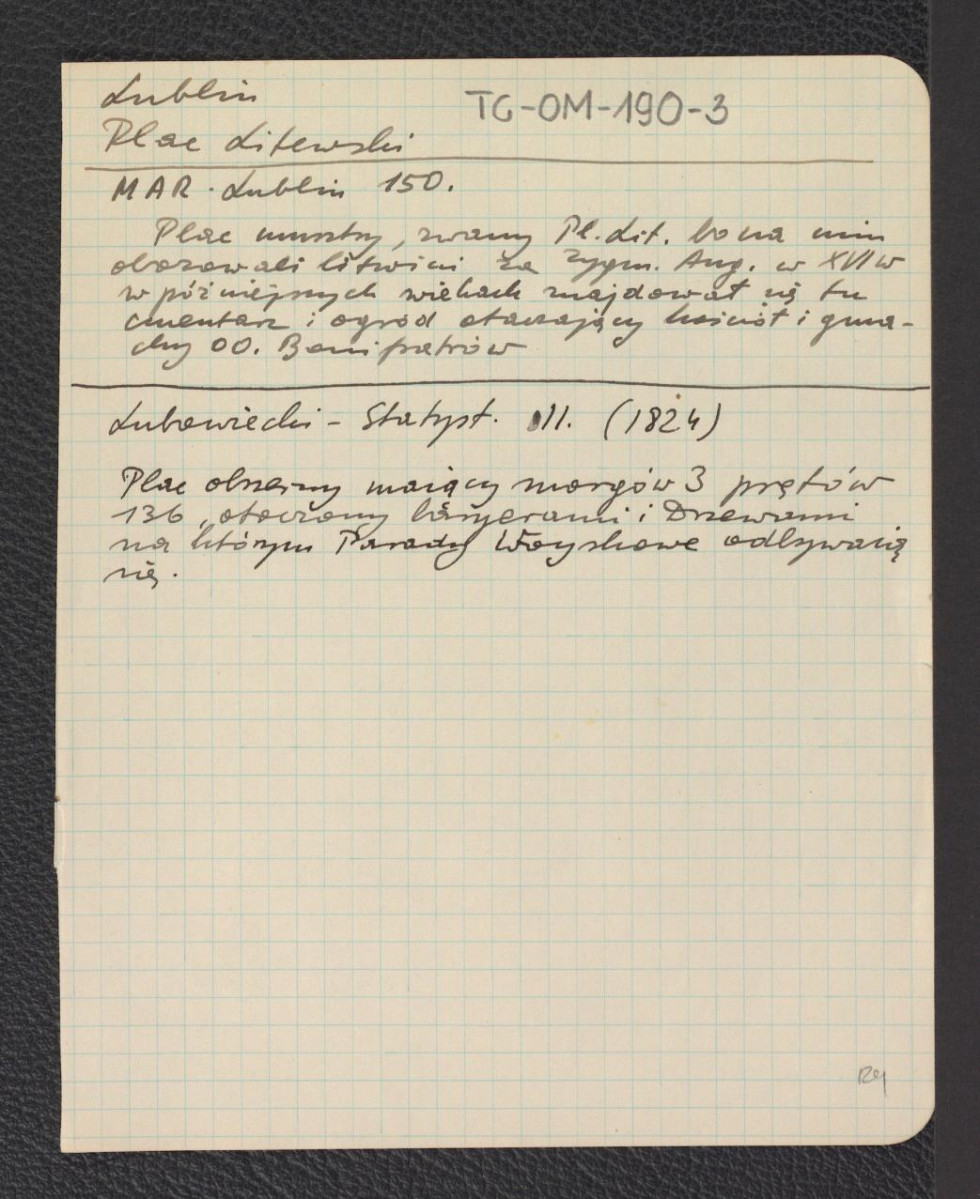 Lublin
TG-OM-190-3
Plac Litewski
MAR. Lublin 150.
Plac musztry, zwany Pl. Lit. bo na nim
obozowali litwini za Zygm. Aug. w XVI w
w późniejszych wiekach znajdował się tu
cmentarz i ogród otaczający kościół i gma-
chy OO. Bonifratrów
Lubowiecki - Statyst. II. (1824)
Plac obszerny maiący morgów 3 prętów
136, otoczony baryerami i Drzewami
na którym Parady Woyskowe odbywaią
się.